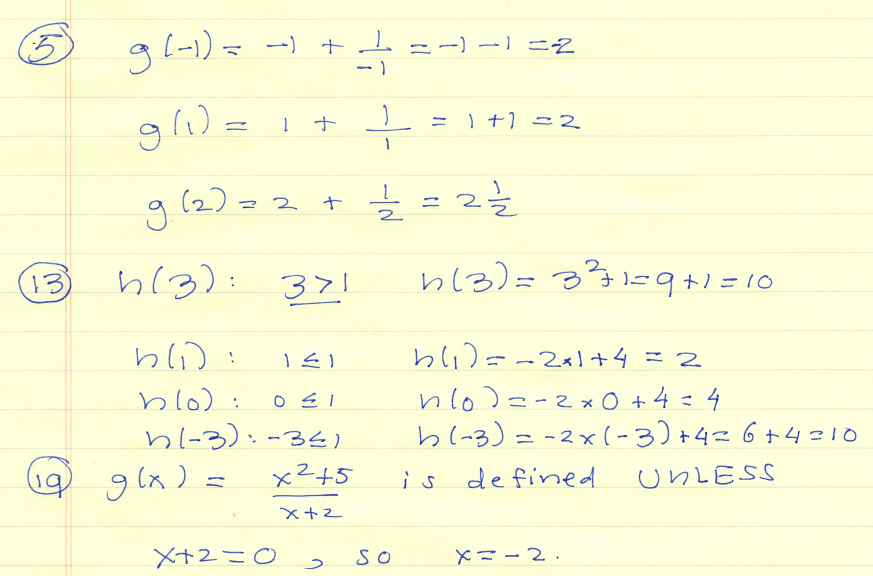 5 g(-1) = -1 + 1/-1 = -1 -1 =-2
g(1) = 1 + 1/1 = 1+1 =2
g(2) = 2 + 1/2 = 2 1/2
13 h(3): 3>1 h(3)= 3²+1=9+1=10
h(1): 1≤1 h(1)=-2×1+4 = 2
h(0): 0≤1 h(0)=-2×0+4=4
h(-3): -3≤1 h(-3)=-2×(-3)+4=6+4=10
19 g(x) = x²+5/x+2 is defined UNLESS
x+2=0, so x=-2.